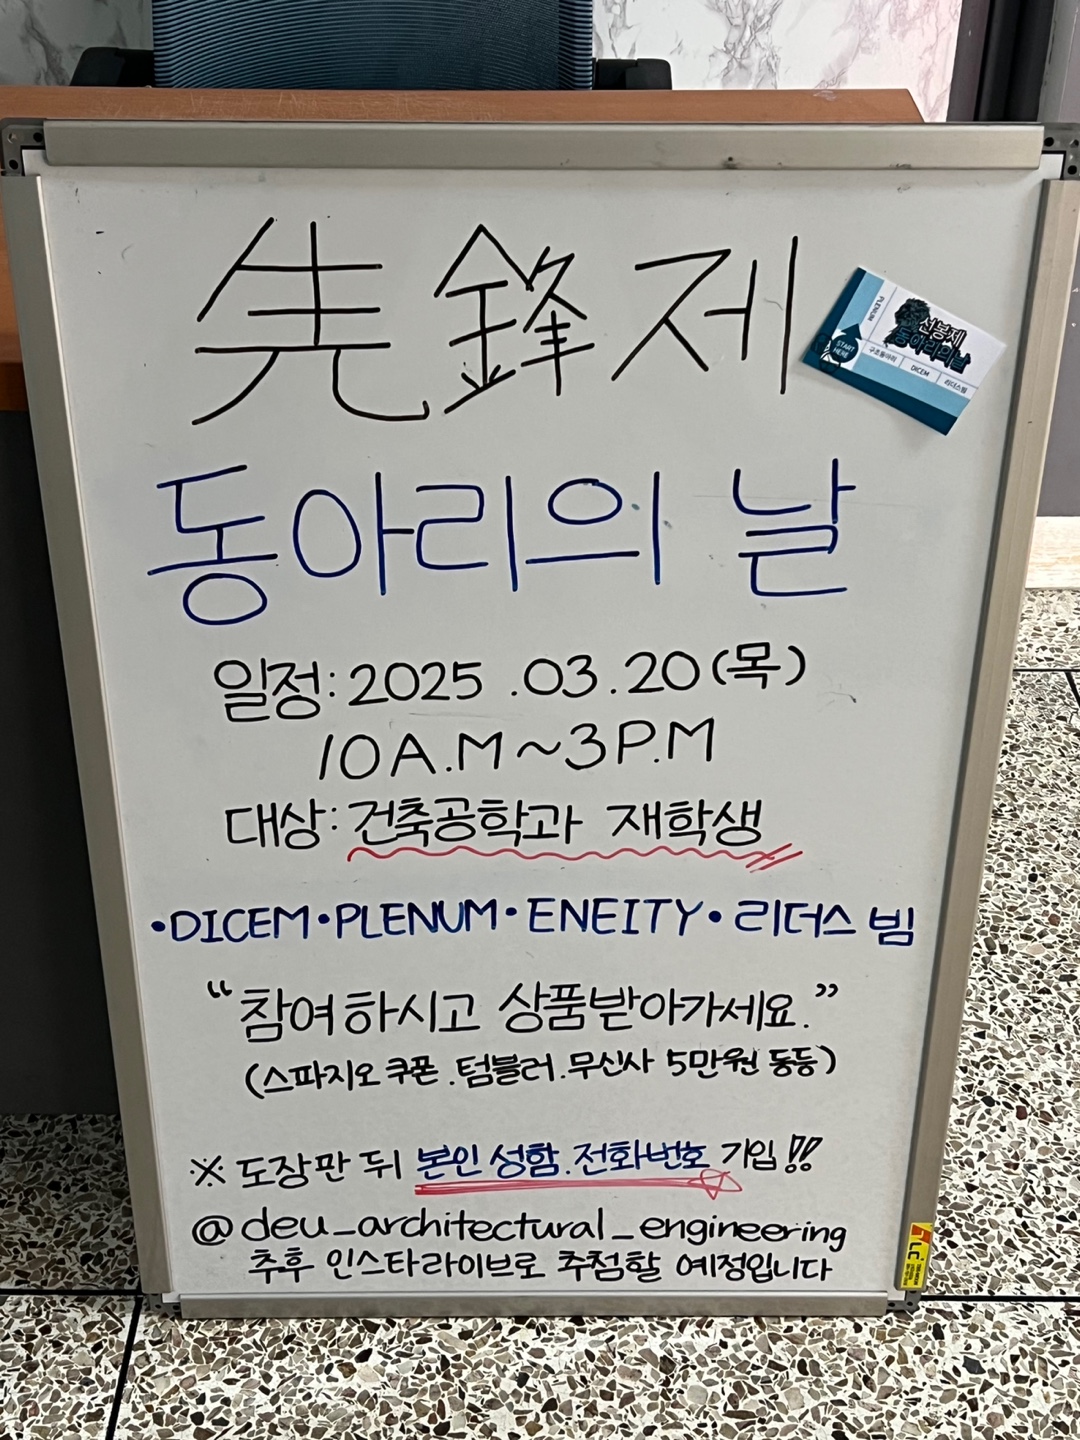 先鋒제
동아리의 날
일정: 2025 .03.20(목)
10A.M~3P.M
대상: 건축공학과 재학생
•DICEM•PLENUM•ENEITY•리더스빔
“참여하시고 상품받아가세요.”
(스파지오 쿠폰.텀블러.무신사 5만원 동등)
※ 도장판 뒤 본인 성함.전화번호 기입!!
@deu_architectural_engineering
추후 인스타라이브로 추첨할 예정입니다
PLENUM
선봉제
동아리의날
START HERE
구조동아리
DICEM
리더스빔